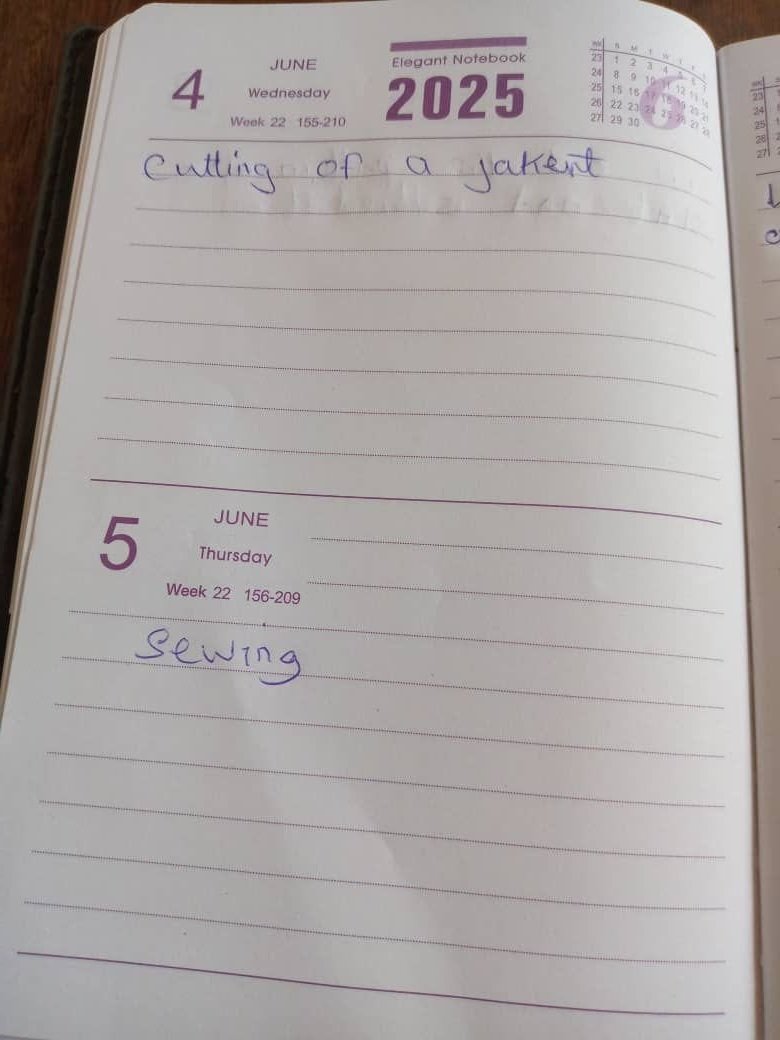 4
JUNE
Wednesday
Week 22 155-210
Elegant Notebook
2025
WK S M T W T F S
23 1 2 3 4 5 6 7
24 8 9 10 11 12 13 14
25 15 16 17 18 19 20 21
26 22 23 24 25 26 27 28
27 29 30
6
Cutting of a jakent
5
JUNE
Thursday
Week 22 156-209
Sewing
WK
23
24
25
26
27